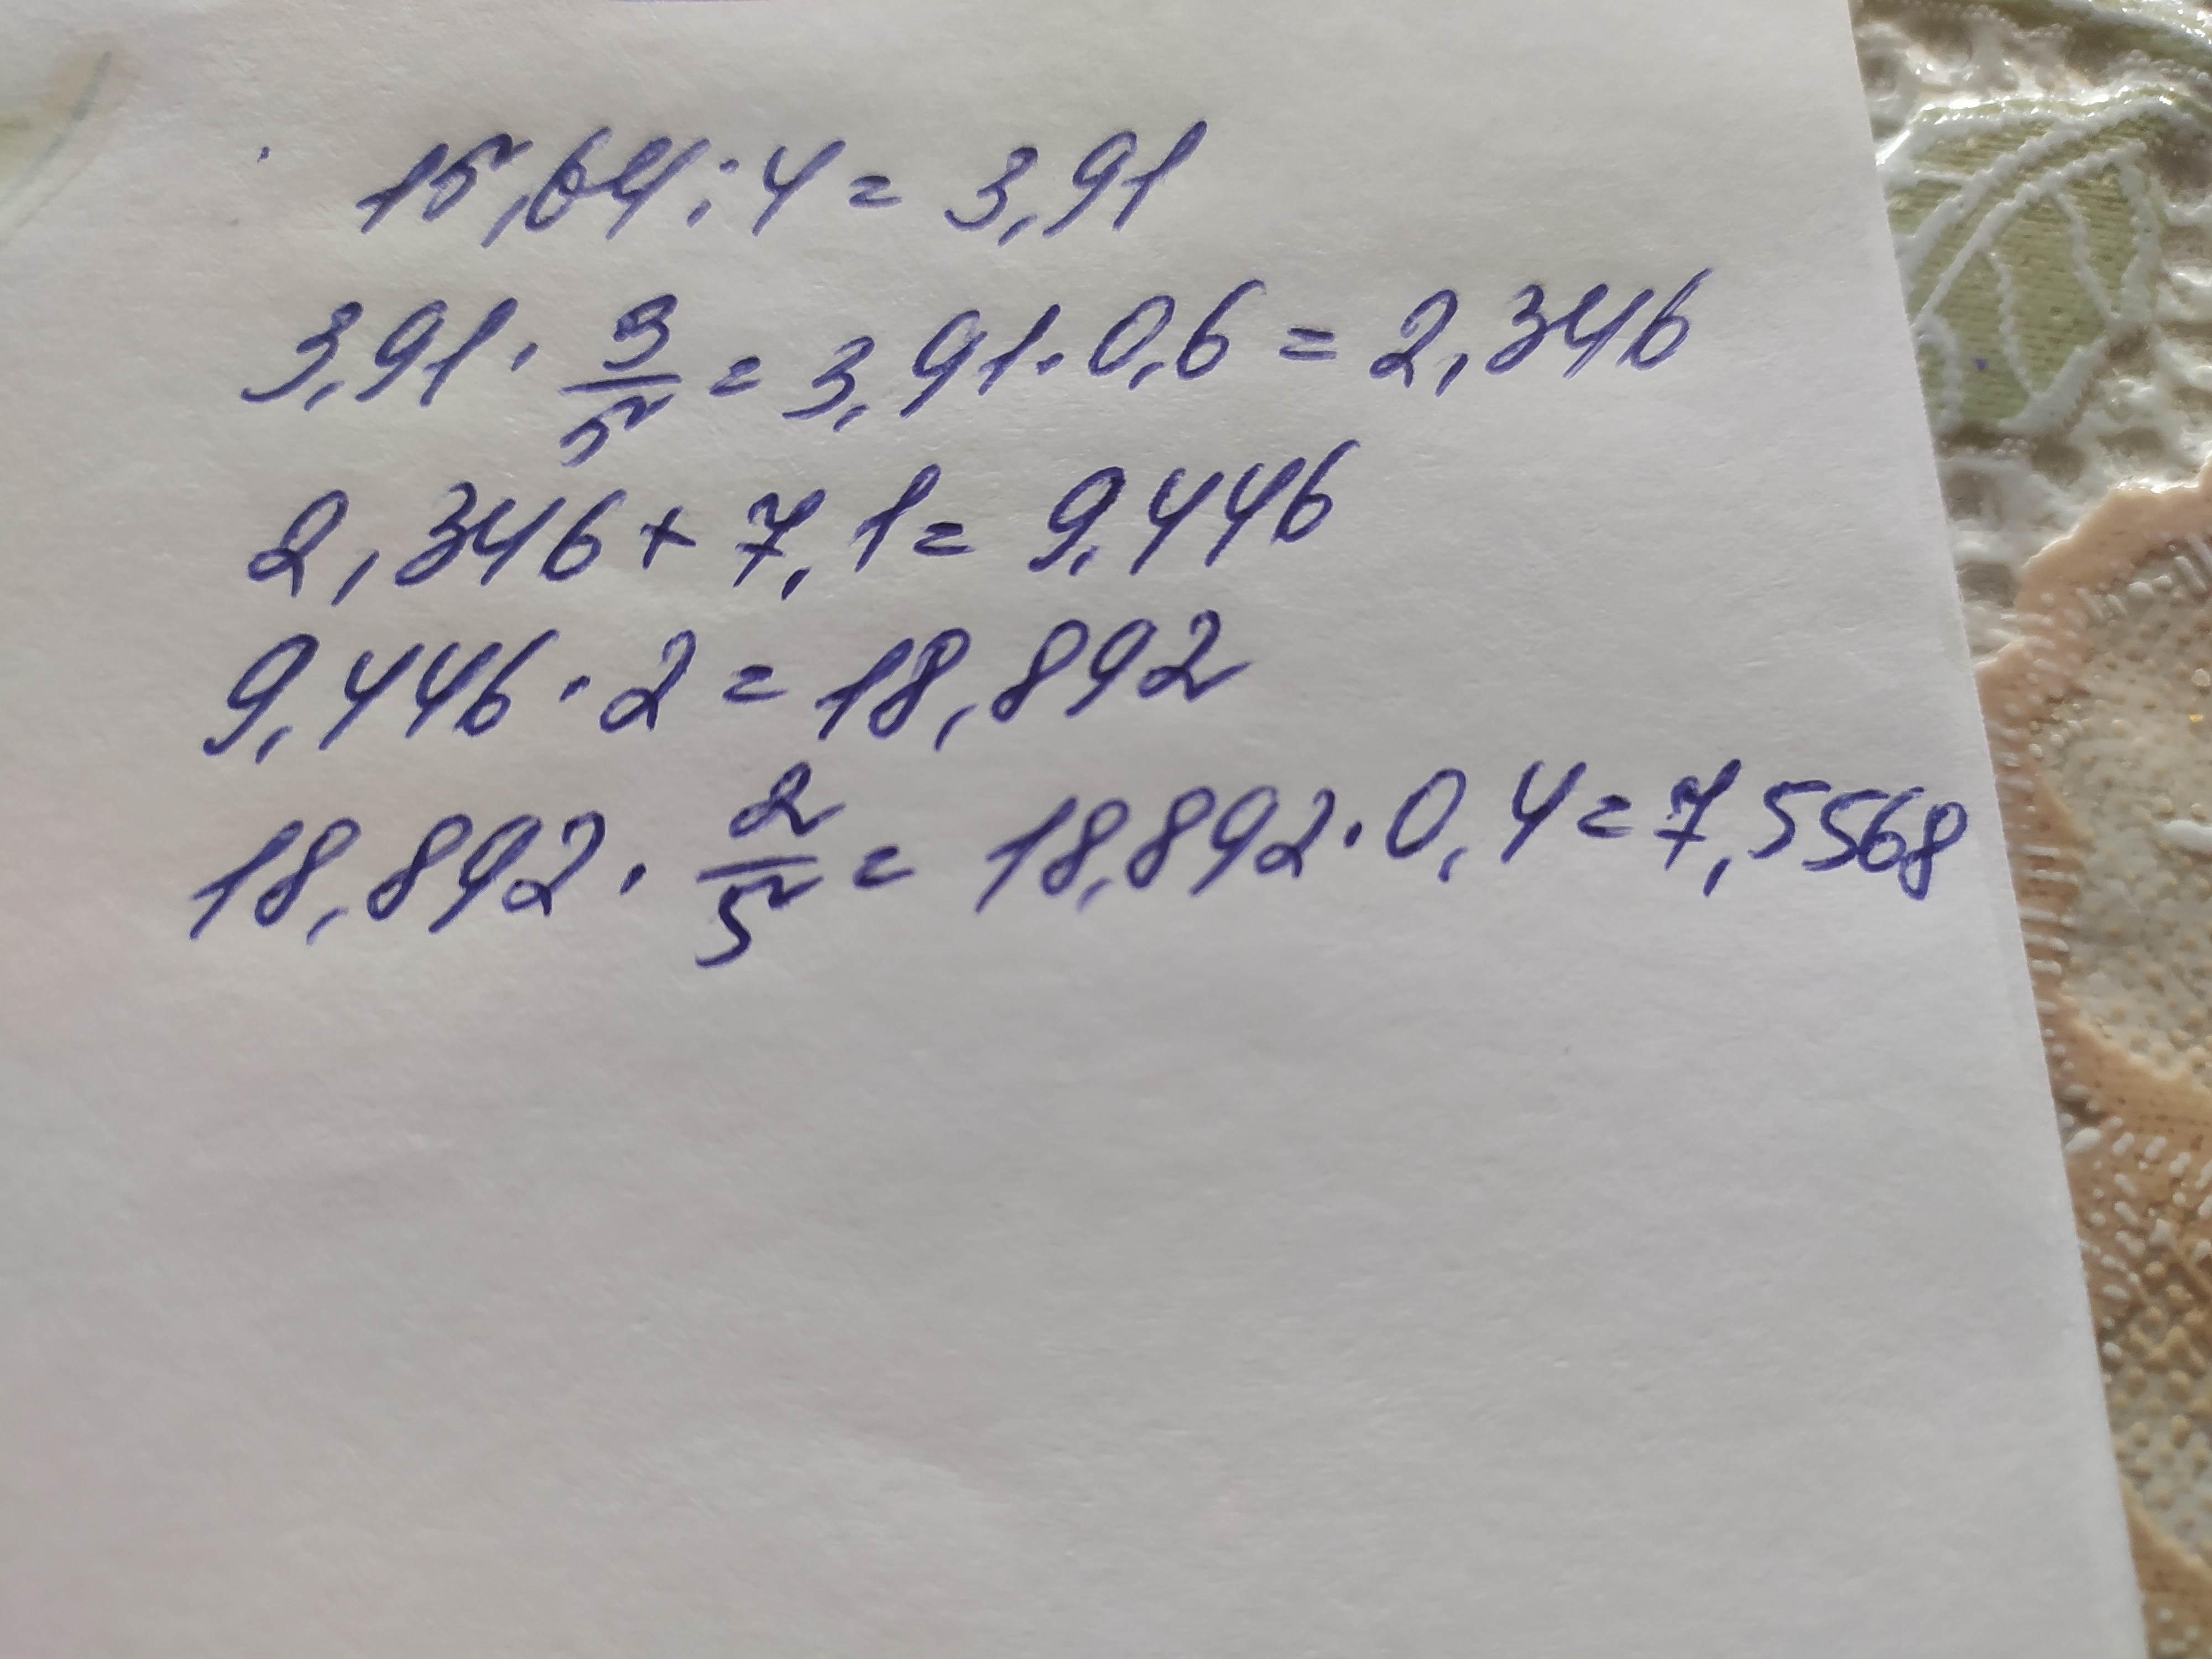 15,64:4=3,91
3,91·3/5=3,91·0,6=2,346
2,346+7,1=9,446
9,446·2=18,892
18,892·2/5=18,892·0,4=7,5568